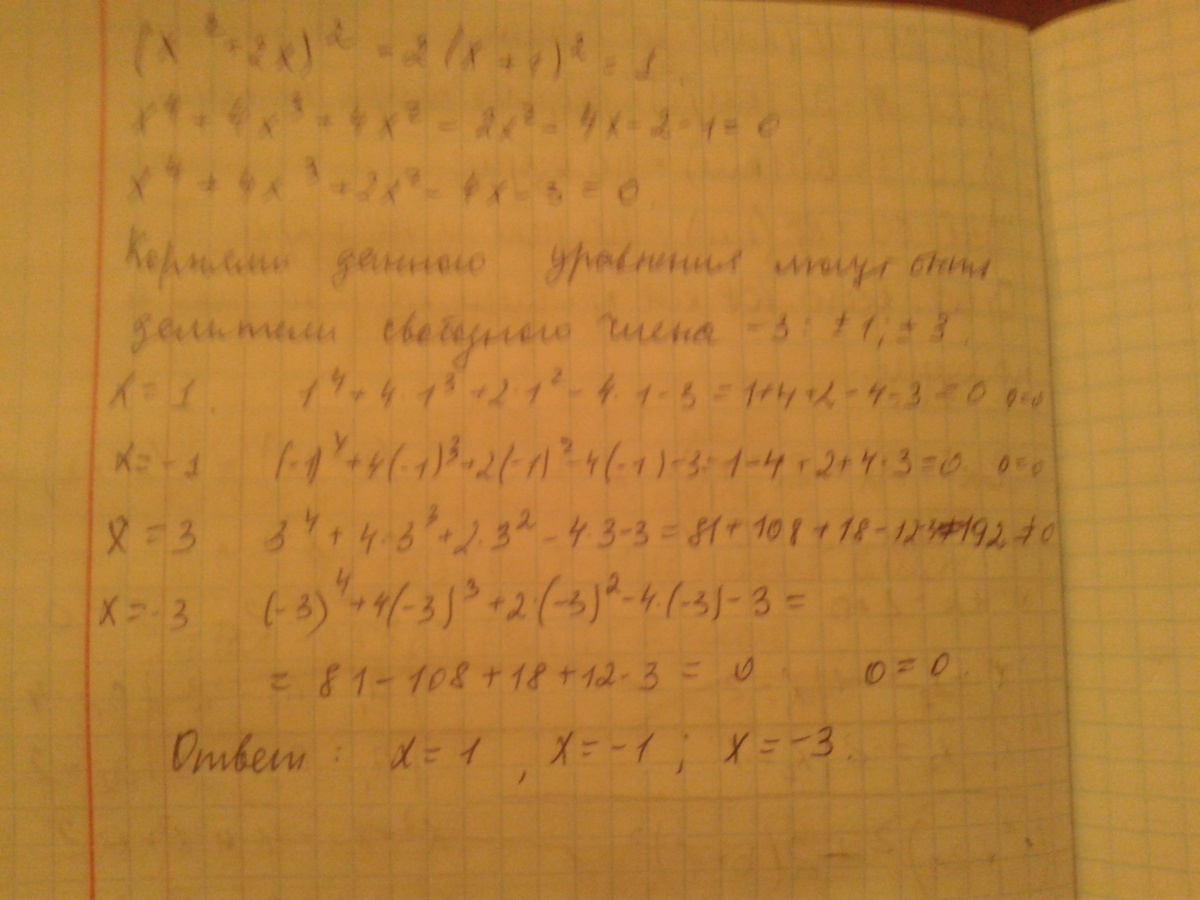 (x² + 2x)² = 2(x + 1)² = 1
x⁴ + 4x³ + 4x² - 2x² - 4x - 2 - 1 = 0
x⁴ + 4x³ + 2x² - 4x - 3 = 0
Корнями данного уравнения могут быть
делители свободного члена -3: ±1; ±3.
x = 1. 1⁴ + 4·1³ + 2·1² - 4·1 - 3 = 1+4+2-4-3 = 0 0=0
x = -1 (-1)⁴ + 4(-1)³ + 2(-1)² - 4(-1) - 3 = 1-4+2+4-3 = 0 0=0
x = 3 3⁴ + 4·3³ + 2·3² - 4·3 - 3 = 81 + 108 + 18 - 12 192 ≠ 0
x = -3 (-3)⁴ + 4(-3)³ + 2·(-3)² - 4·(-3) - 3 =
= 81 - 108 + 18 + 12 - 3 = 0 0 = 0.
Ответ: x = 1, x = -1; x = -3.